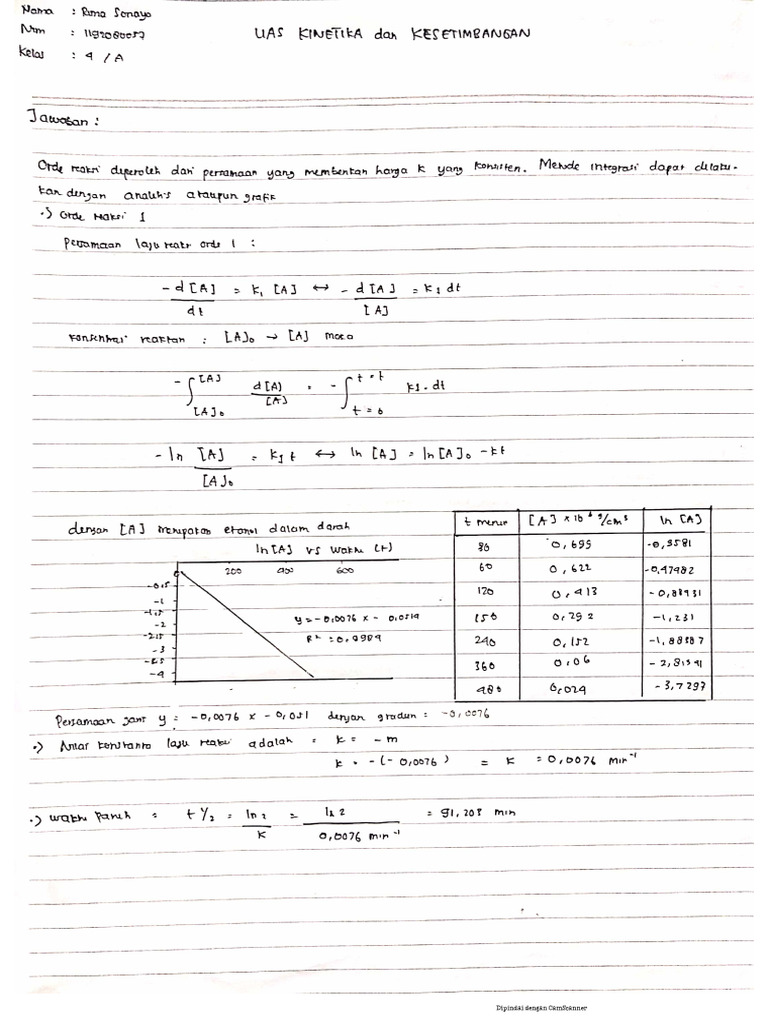 Nama : Rima Sonayo
Nim : 1192060057
UAS KINETIKA dan KESETIMBANGAN
Kelas : 4 / A
Jawaban :
Orde reaksi diperoleh dari persamaan yang memberikan harga k yang konsisten. Metode integrasi dapat dilaku-
kan dengan analitis ataupun grafik
•) Orde reaksi 1
Persamaan laju reaksi orde 1 :
-d[A]/dt = k1 [A] ↔ -d[A]/[A] = k1 dt
konsentrasi reaktan : [A]o → [A] maka
-∫[A]o [A] d[A]/[A] = -∫t=0 t=t k1. dt
-ln [A]/[A]o = k1 t ↔ ln [A] = ln[A]o -kt
dengan [A] merupakan etanol dalam darah
ln[A] vs waktu (t)
0 200 400 600
-0.5
-1
-1.5
-2
-2.5
-3
-4
y = -0,0076 x - 0,0519
R² = 0,9989
t menit [A] × 10 g/cm³ ln [A]
0,699 -0,3581
60 0,622 -0,47482
120 0,413 -0,88431
150 0,292 -1,231
240 0,152 -1,88387
360 0,06 -2,81341
480 0,024 -3,7297
Persamaan garis y = -0,0076 x - 0,051 dengan gradien : -0,0076
•) Antar konstanta laju reaksi adalah = k = -m
k = -(-0,0076) = k = 0,0076 min⁻¹
•) waktu paruh = t ½ = ln 2/k = ln 2/0,0076 min⁻¹ = 91,203 min
Dipindai dengan CamScanner